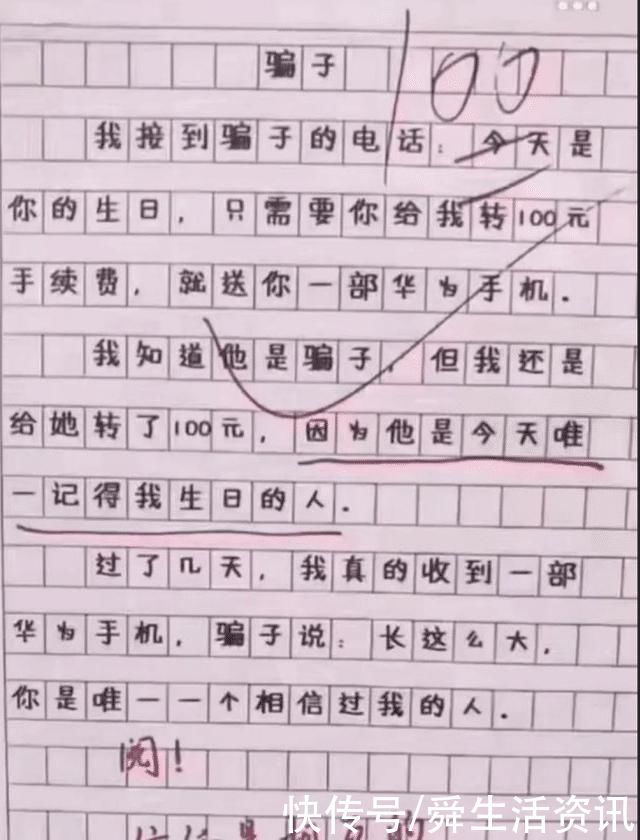 骗子
100
我接到骗子的电话：今天是
你的生日，只需要你给我转100元
手续费，就送你一部华为手机．
我知道他是骗子，但我还是
给她转了100元，因为他是今天唯
一记得我生日的人．
过了几天，我真的收到一部
华为手机，骗子说：长这么大，
你是唯一一个相信过我的人．
阅！
快传号/舜生活资讯